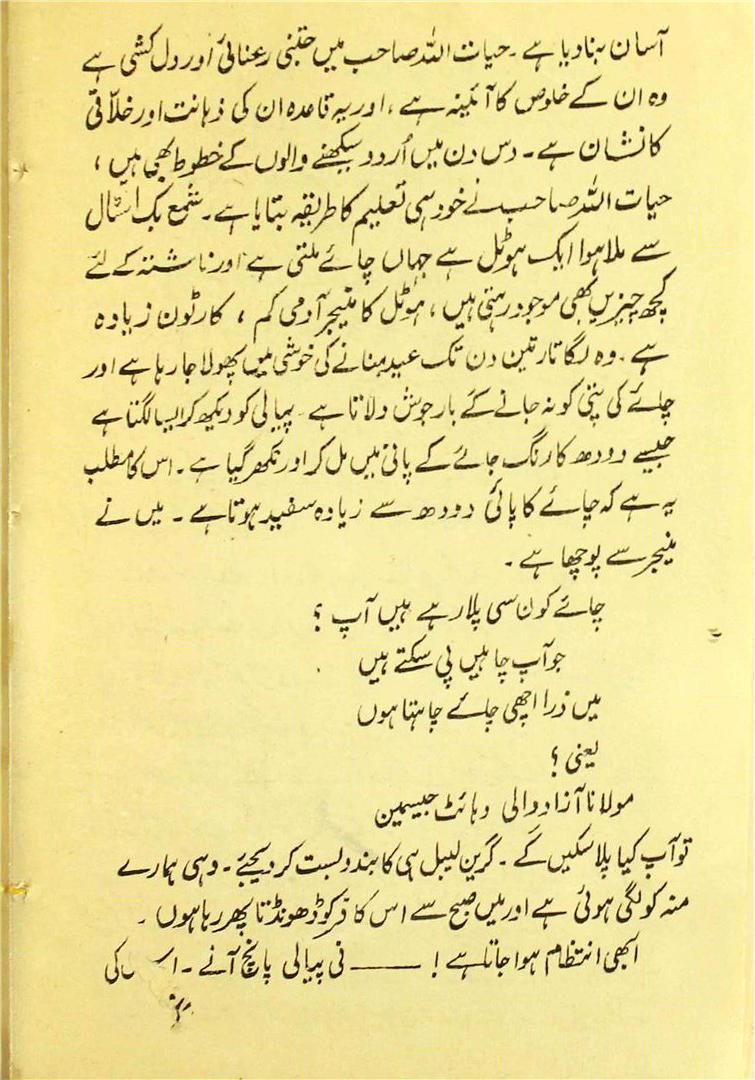 آسان بنا دیا ہے ۔ حیات اللہ صاحب میں جتنی رعنائی اور دل کشی ہے
وہ ان کے خلوص کا آئینہ ہے ، اور یہ قاعدہ ان کی ذہانت اور خلّاقی
کا نشان ہے ۔ دس دن میں اُردو سیکھنے والوں کے خطوط بھی ہیں ،
حیات اللہ صاحب نے خود ہی تعلیم کا طریقہ بتایا ہے ۔ شمع بک اسٹال
سے ملا ہوا ایک ہوٹل ہے جہاں چائے ملتی ہے اور ناشتہ کے لئے
کچھ چیزیں بھی موجود رہتی ہیں ، ہوٹل کا منیجر آدمی کم ، کارٹون زیادہ
ہے ۔ وہ لگاتار تین دن تک عید منانے کی خوشی میں پھولا جا رہا ہے اور
چائے کی پتی کو نہ جانے کَے بار جوش دلاتا ہے ۔ پیالی کو دیکھ کر ایسا لگتا ہے
جیسے دودھ کا رنگ چائے کے پانی میں مل کر اور نکھر گیا ہے ۔ اس کا مطلب
یہ ہے کہ چائے کا پانی دودھ سے زیادہ سفید ہوتا ہے ۔ میں نے
منیجر سے پوچھا ہے ۔
چائے کون سی پلا رہے ہیں آپ ؟
جو آپ چاہیں پی سکتے ہیں
میں ذرا اچھی چائے چاہتا ہوں
یعنی ؟
مولانا آزاد والی وہائٹ جیسمین
تو آپ کیا پلا سکیں گے ۔ گرین لیبل ہی کا بندوبست کر دیجئے ۔ وہی ہمارے
منہ کو لگی ہوئی ہے اور میں صبح سے اس کافر کو ڈھونڈتا پھر رہا ہوں ۔
ابھی انتظام ہوا جاتا ہے ! ——— فی پیالی پانچ آنے ۔ کی